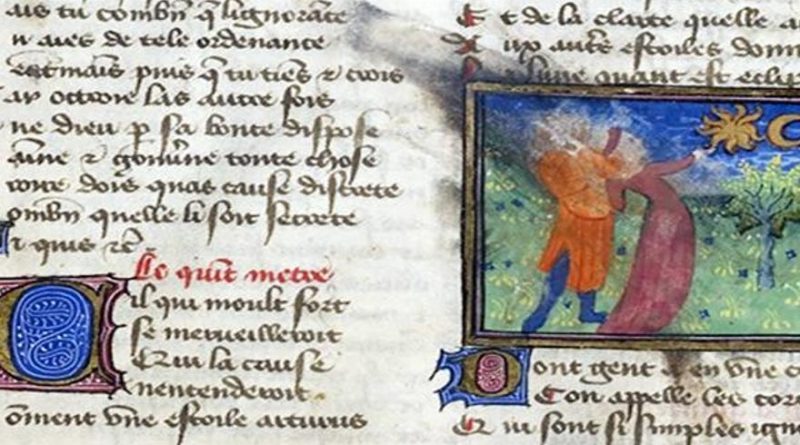 ais tu combn̄ q̄ lignorance
n aies de tele ordenance
est mais puis q̄ tu tiens ⁊ crois
ay octroie las autre fois
ne dieu ꝑ sa bonte dispose
⁊ gouu̅ne toute chose
dois quas cause discrete
ombn̄ quelle li soit secrete
t quis ⁊c̄
Le quīt metre
il qui moult fort
se merueilleroit
Qui la cause
nentenderoit
om̄ent vne estoile arturus
Et de la clarte quelle a
Aux autr̄s estoiles donn
La lune quant est eclip
Dont gent a en vne c
Con appelle les cor
Qui sont si simples igno